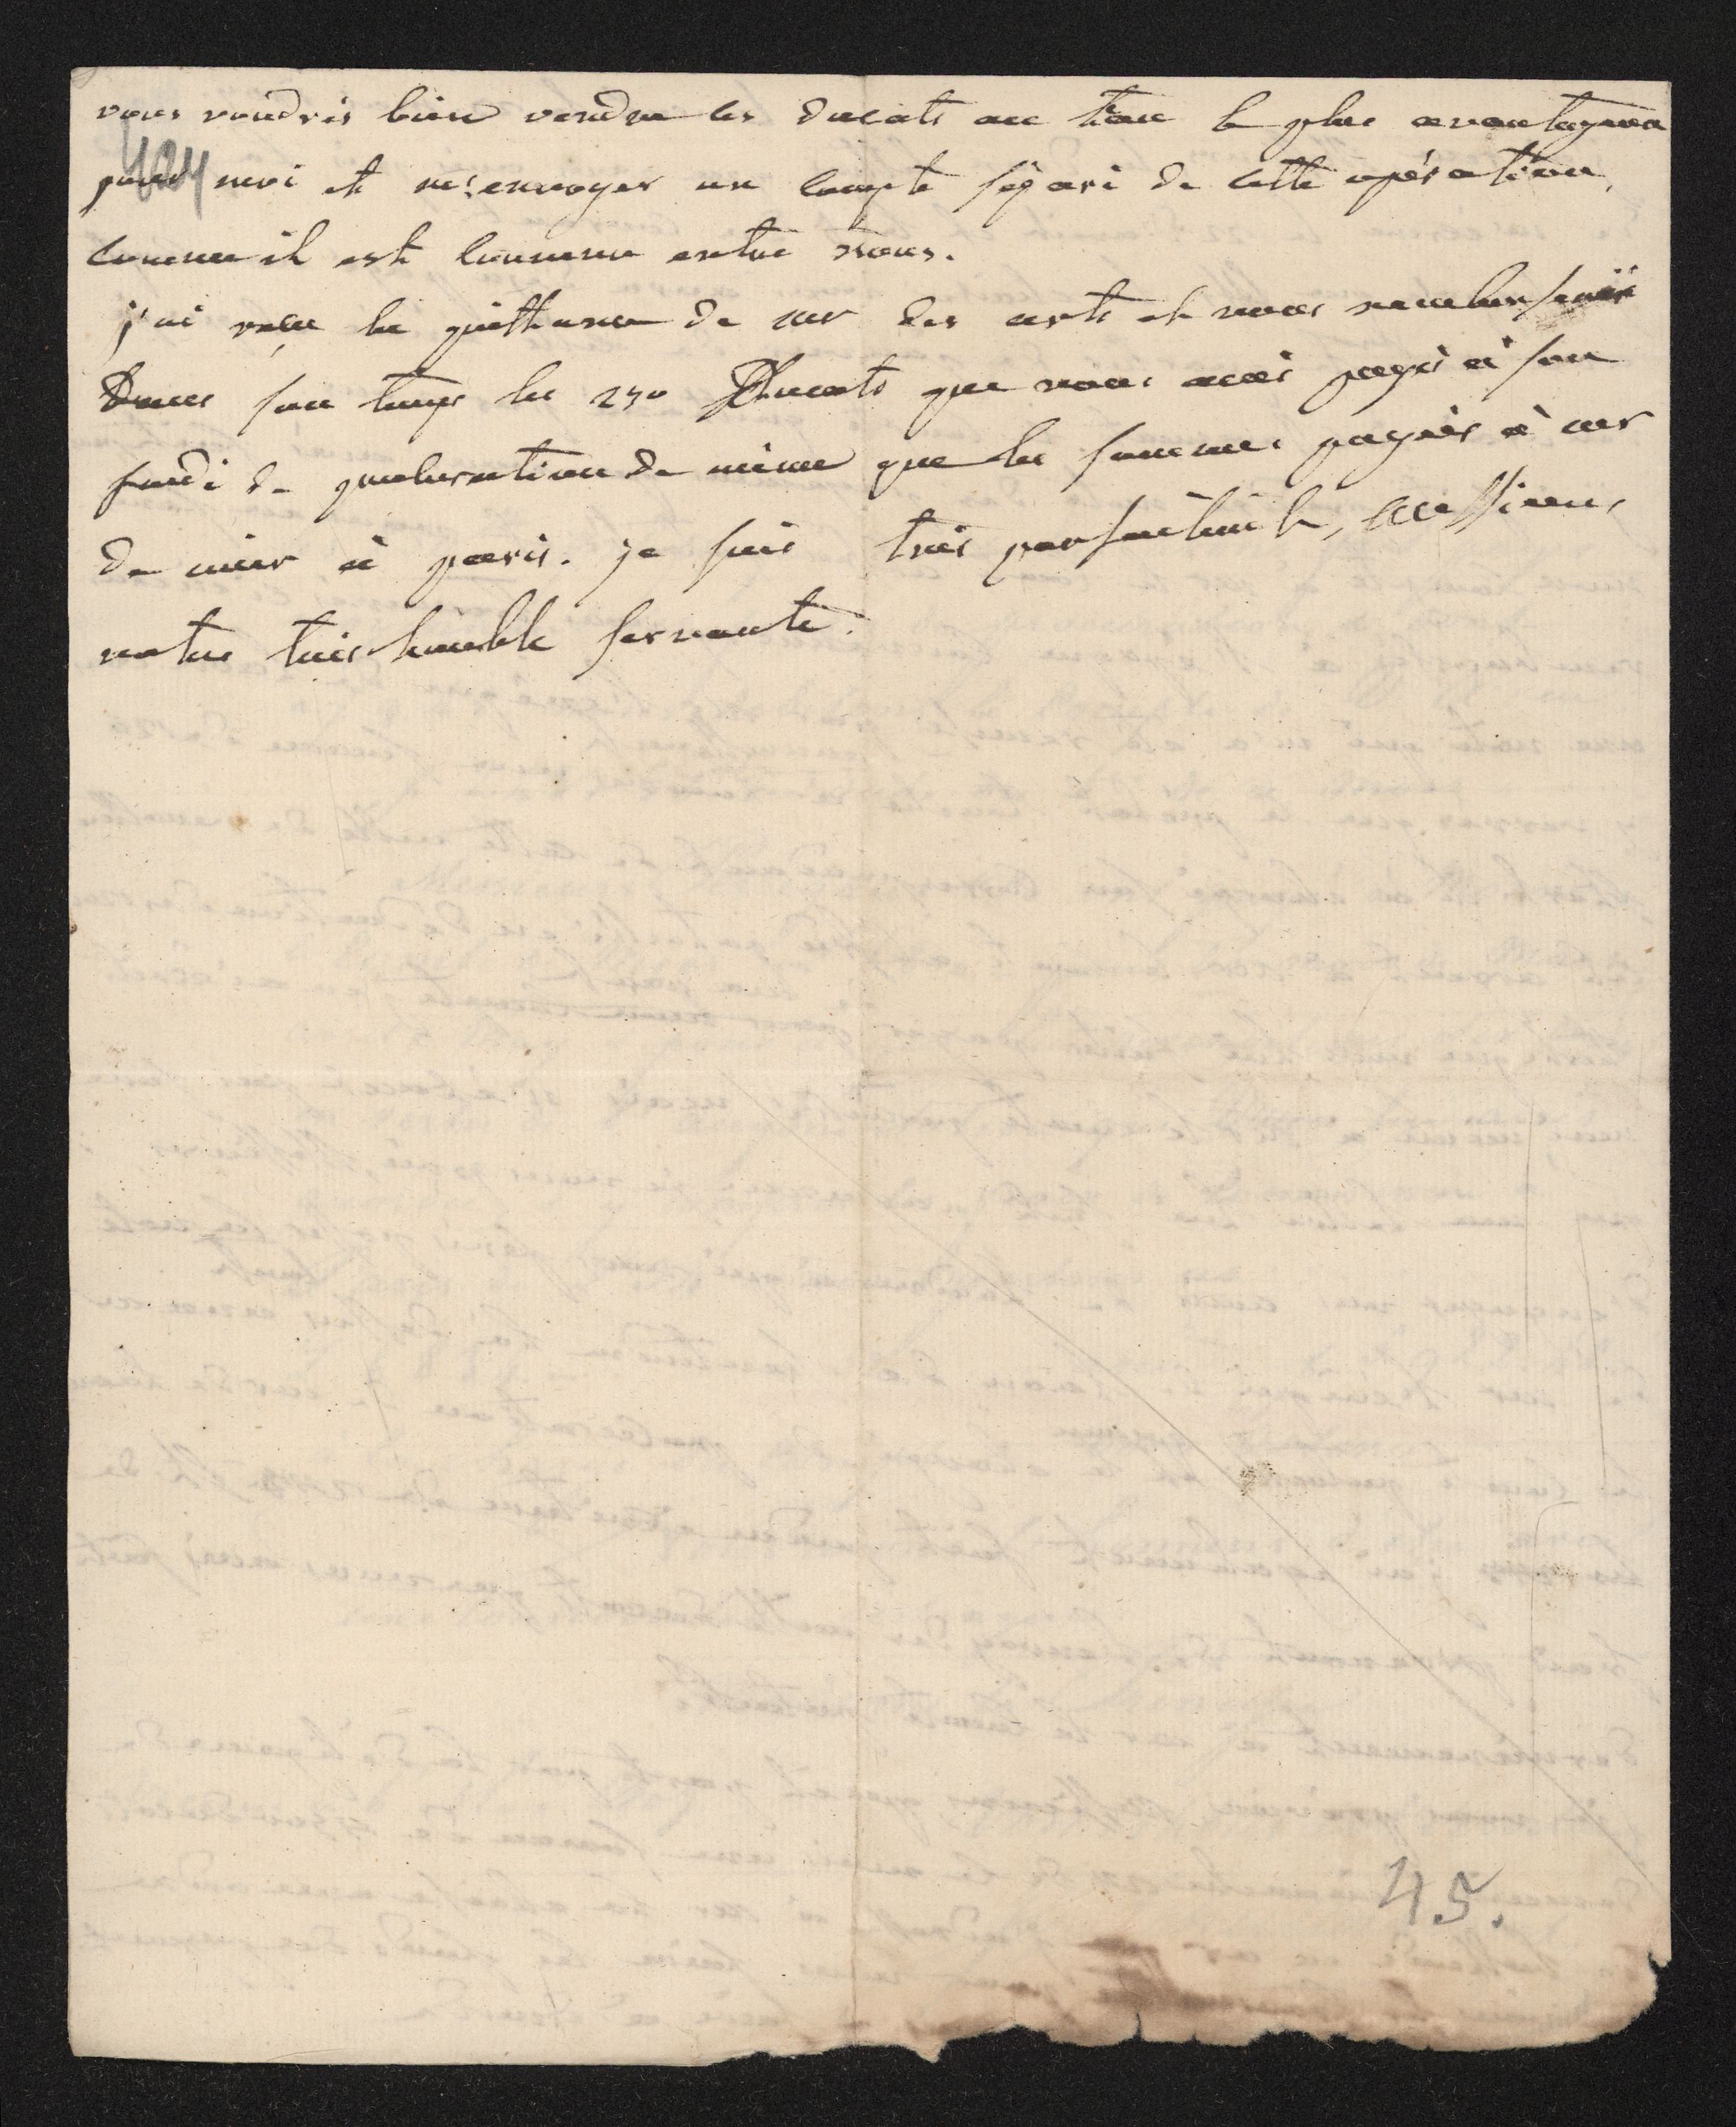 vous voudrés bien vendre les ducats au taux le plus avantageux
pour moi et m'envoyer un compte séparé de cette opération,
comme il est convenu entre nous.
j'ai reçu la quittance de mr des arts et vous
dans son temps les 250 Ducats que vous avés payés à son
fondé de procuration de même que les sommes payées à mr
de à paris. je suis très parfaitement, Messieurs,
votre très humble servante.
45.